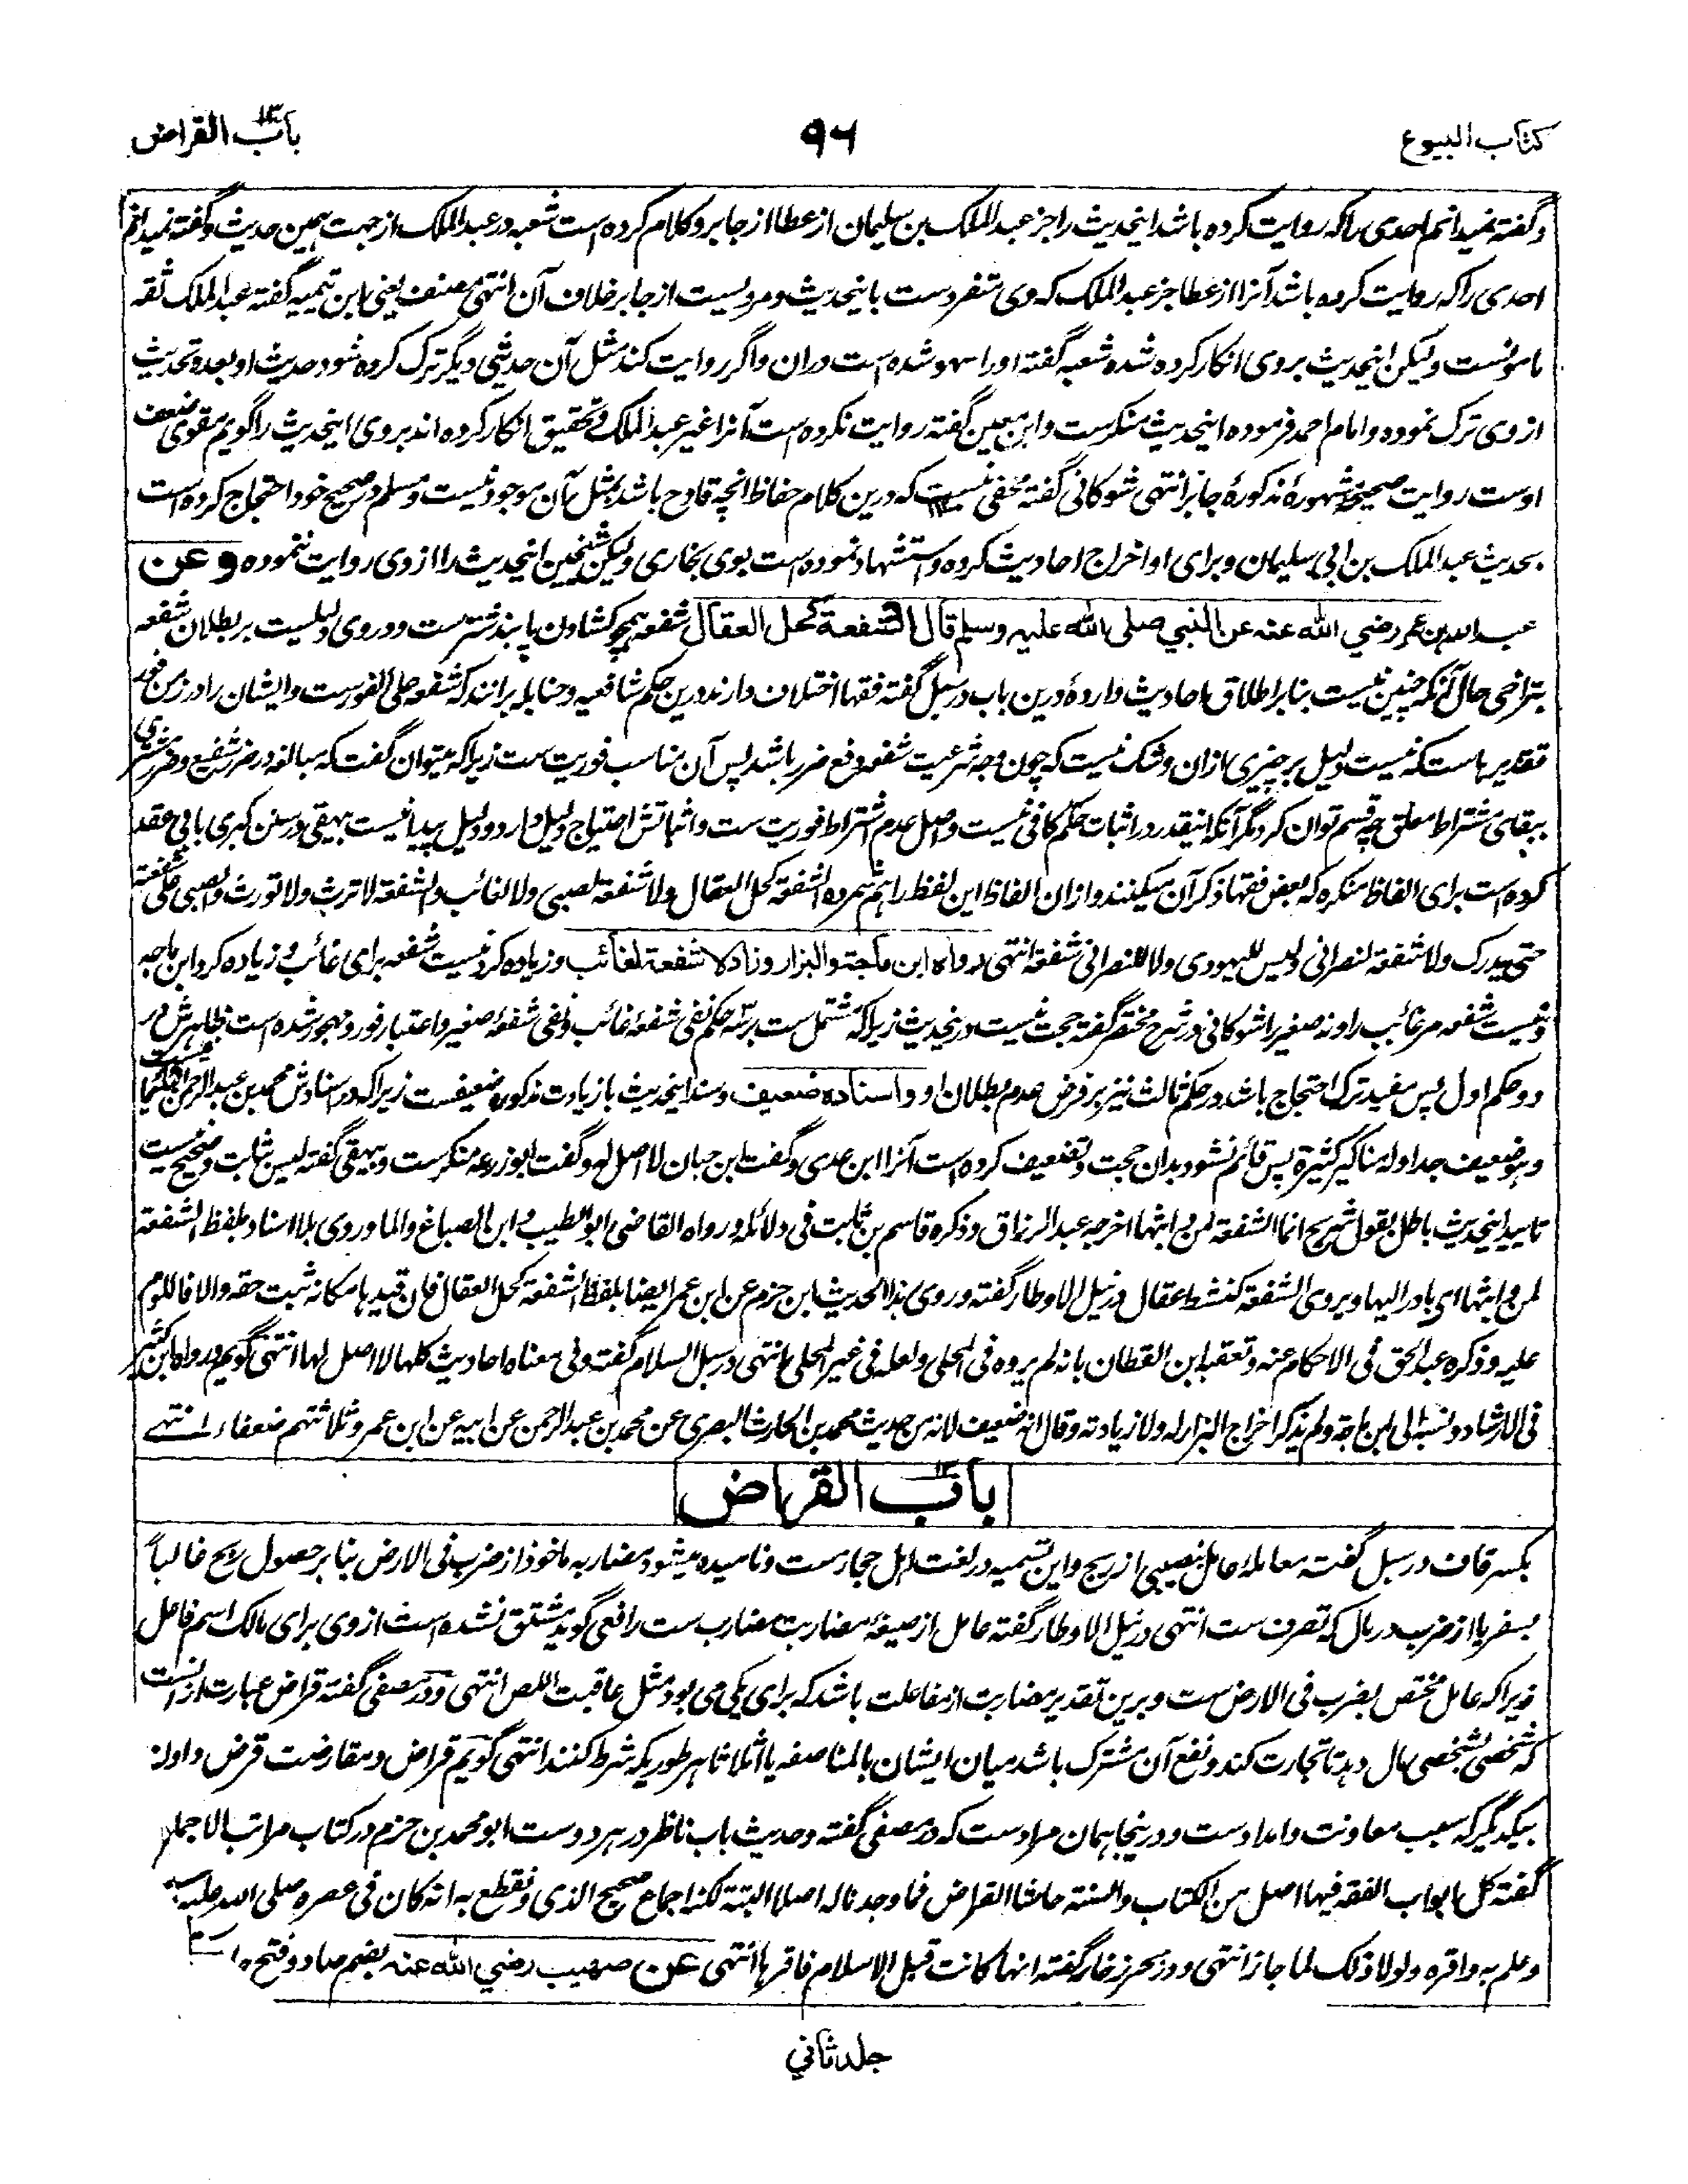 کتاب البیوع
۹۶
باب القراض
وگفته نمیدانم احدی را که روایت کرده باشد اینحدیث را جز عبدالملک بن سلیمان از عطا از جابر و کلام کرده است شعبه در عبدالملک از جهت همین حدیث وگفته نمیدانم
احدی را که روایت کرده باشد آنرا از عطا جز عبدالملک که وی متفردست باینحدیث و مرویست از جابر خلاف آن انتهی مصنف یعنی ابن تیمیه گفته عبدالملک ثقه
مامونست ولیکن اینحدیث بروی انکار کرده شده شعبه گفته او را سهو شده است دران واگر روایت کند مثل آن حدیثی دیگر ترک کرده شود حدیث او بعده تحدیث
از وی ترک نموده و امام احمد فرموده اینحدیث منکرست وابن معین گفته روایت نکرده است آنرا غیر عبدالملک و تحقیق انکار کرده اند بروی اینحدیث را گویم مقوی ضعف
اوست روایت صحیحهٔ مشهورهٔ مذکورهٔ جابر انتهی شوکانی گفته مخفی نیست که درین کلام حفاظ انچه قادح باشد بمثل آن موجود نیست ومسلم در صحیح خود احتجاج کرده است
بحدیث عبدالملک بن ابی سلیمان و برای او اخراج احادیث کرده واستشهاد نموده است بوی بخاری ولیکن شیخین اینحدیث را از وی روایت ننموده وعن
عبدالله بن عمر رضي الله عنه عن النبي صلى الله عليه وسلم قال الشفعة كحل العقال شفعه همچو کشادن پابند شترست و دروی دلیلست بر بطلان شفعه
بتراخی حال آنکه چنین نیست بنابر اطلاق احادیث واردهٔ درین باب در سبل گفته فقها اختلاف دارند درین حکم شافعیه و حنابله برانند که شفعه علی الفورست وایشان را در زمن فور
تقدیرهاست که نیست دلیل بر چیزی ازان وشک نیست که چون وجه شرعیت شفعه دفع ضرر باشد پس آن مناسب فوریت ست زیرا که میتوان گفت که مبالغه در ضرر شفیع و ضرر مشتری
ببقای مشتراط معلق چه قسم توان کرد مگر آنکه اینقدر در اثبات حکم کافی نیست واصل عدم اشتراط فوریت ست واثباتش احتیاج دلیل دارد و دلیل پیدا نیست بیهقی در سنن کبری بابی عقد
کرده است برای الفاظ منکره که بعض فقها ذکر آن میکنند وازان الفاظ این لفظ را هم شمرده الشفعة کحل العقال ولا شفعة لصبی ولا لغائب والشفعة لا ترث ولا تورث والصبی علی شفعته
حتی یدرک ولا شفعة لنصرانی ولیس للیهودی ولا للنصرانی شفعة انتهی رواه ابن ماجة والبزار وزاد لا شفعة لغائب وزیاده کرد نیست شفعه برای غائب و زیاده کرد ابن ماجه
ونیست شفعه مر غائب را ونه صغیر را شوکانی در شرح مختصر گفته حجت نیست درینحدیث زیرا که مشتمل ست بر سه حکم نفی شفعهٔ غائب ونفی شفعهٔ صغیر واعتبار فور و مهجور شده است ظاهرش در
دو حکم اول پس مفید ترک احتجاج باشد در حکم ثالث نیز بر فرض عدم بطلان او واسناده ضعیف وسند اینحدیث با زیادت مذکوره ضعیفست زیرا که در اسنادش محمد بن عبدالرحمن بیلمانیست
وهو ضعیف جدا وله مناکیر کثیرة پس قائم نشود بدان حجت وتضعیف کرده است آنرا ابن عدی وگفت ابن حبان لا اصل له وگفت ابوزرعه منکرست وبیهقی گفته لیس ثابت وصحیح نیست
تایید اینحدیث باطل بقول شریح انما الشفعة لمن واثبها اخرجه عبدالرزاق وذکره قاسم بن ثابت فی دلائله ورواه القاضی ابوالطیب وابن الصباغ والماوردی بلا اسناد بلفظ الشفعة
لمن واثبها ای بادر الیها ویروی الشفعة کنشط عقال در نیل الاوطار گفته وروی هذا الحدیث ابن حزم عن ابن عمر ایضا بلفظ الشفعة کحل العقال فان قیدها مکانه ثبت حقه والا فاللوم
علیه وذکره عبدالحق فی الاحکام عنه وتعقبه ابن القطان بانه لم یروه فی المحلی ولعله فی غیر المحلی انتهی در سبل السلام گفته وفی معناه احادیث کلها لا اصل لها انتهی گویم ورواه ابن کثیر
فی الارشاد ونسبه الی ابن ماجه ولم یذکر اخراج البزار له ولا زیادته وقال انه ضعیف لانه من حدیث محمد بن الحارث البصری عن محمد بن عبدالرحمن عن ابیه عن ابن عمر وثلاثتهم ضعفاء انتهے
باب القراض
بکسر قاف در سبل گفته معامله عامل بنصیبی از ربح واین تسمیه در لغت اهل حجازست ونامیده میشود مضاربه ماخوذ از ضرب فی الارض بنابر حصول ربح غالباً
بسفر یا از ضرب در مال که تصرف ست انتهی در نیل الاوطار گفته عامل از صیغهٔ مضاربت مضارب ست رافعی گوید مشتق نشده است از وی برای مالک اسم فاعل
زیرا که عامل مختص بضرب فی الارض ست وبرین تقدیر مضاربت از مفاعلت باشد که برای یکی می بود مثل عاقبت اللص انتهی ودر مصفی گفته قراض عبارت از آنست
که شخصی بشخصی مال دهد تا تجارت کند و نفع آن مشترک باشد میان ایشان بالمناصفه یا اثلاثا هر طوریکه شرط کنند انتهی گویم قراض ومقارضت قرض دادن
بیکدیگر که سبب معاونت وامدادست ودر ینجا همان مرادست که در مصفی گفته وحدیث باب ناظر در هر دوست ابومحمد بن حزم در کتاب مراتب الاجماع
گفته کل ابواب الفقه فیها اصل من الکتاب والسنة حاشا القراض فما وجدنا له اصلا البتة لکنه اجماع صحیح الذی ونقطع به انه کان فی عصره صلی الله علیه
وعلم به واقره ولولا ذلک لما جاز انتهی ودر بحر زخار گفته انها کانت قبل الاسلام فاقرها انتهی عن صهيب رضي الله عنه بضم صاد وفتح
جلد ثاني